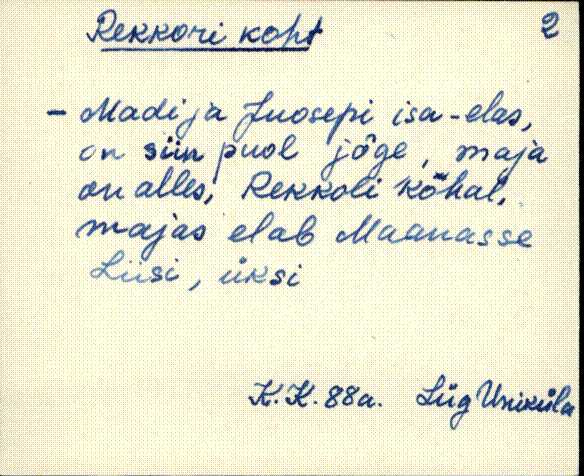 Rekkori koht
2
- Madi ja Juosepi isa - elas,
on siin puol jõge, maja
on alles, Rekkoli kõhal,
majas elab Maanasse
Liisi, üksi
K.K. 88a. Lüg Uniküla